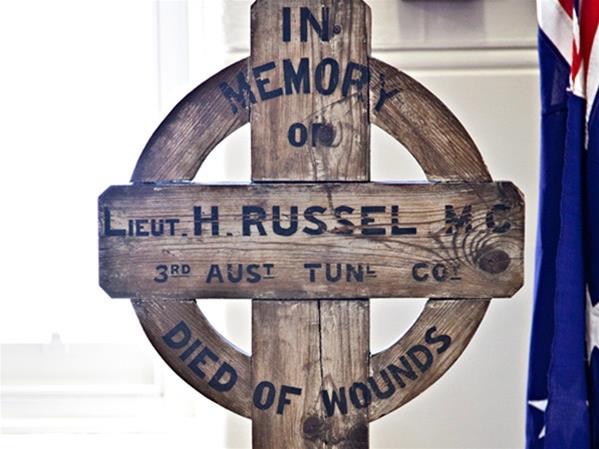 IN
MEMORY
OF
LIEUT. H. RUSSEL M C
3RD AUST TUNL COY
DIED OF WOUNDS